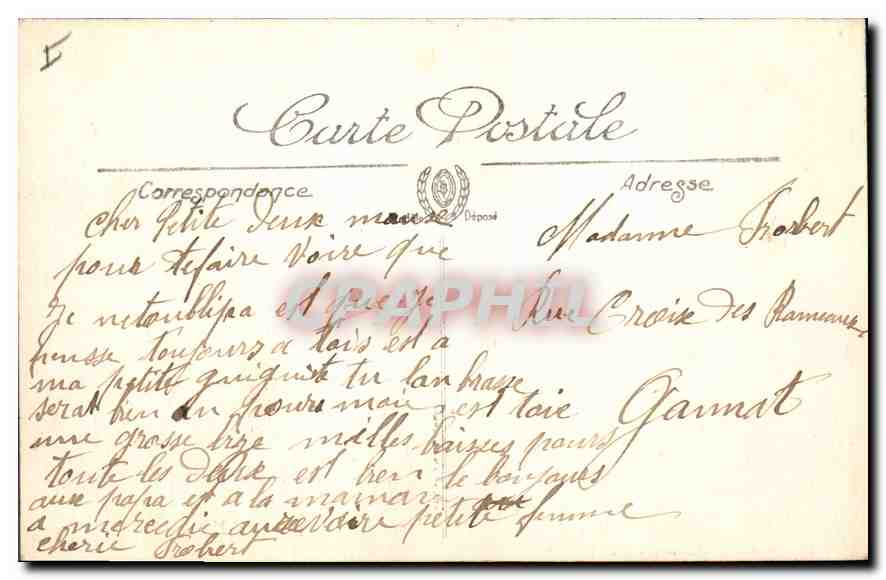 Carte Postale
Correspondance
Adresse
Déposé
cher petite deux
pour te faire Voire que
Je netoublipa est que Je
pensse toujours a tois est a
ma petite guiguite tu lan brasse
serat bien an pour moi est toie
une grosse bize milles baisés pours
toute les deux est bien le bonjours
aux papa et a la maman
a mercedie aurevoire petite femme
cherie Frobert
Madame Frobert
Rue Croix des Rameaux
Gannat
CPAPHIL